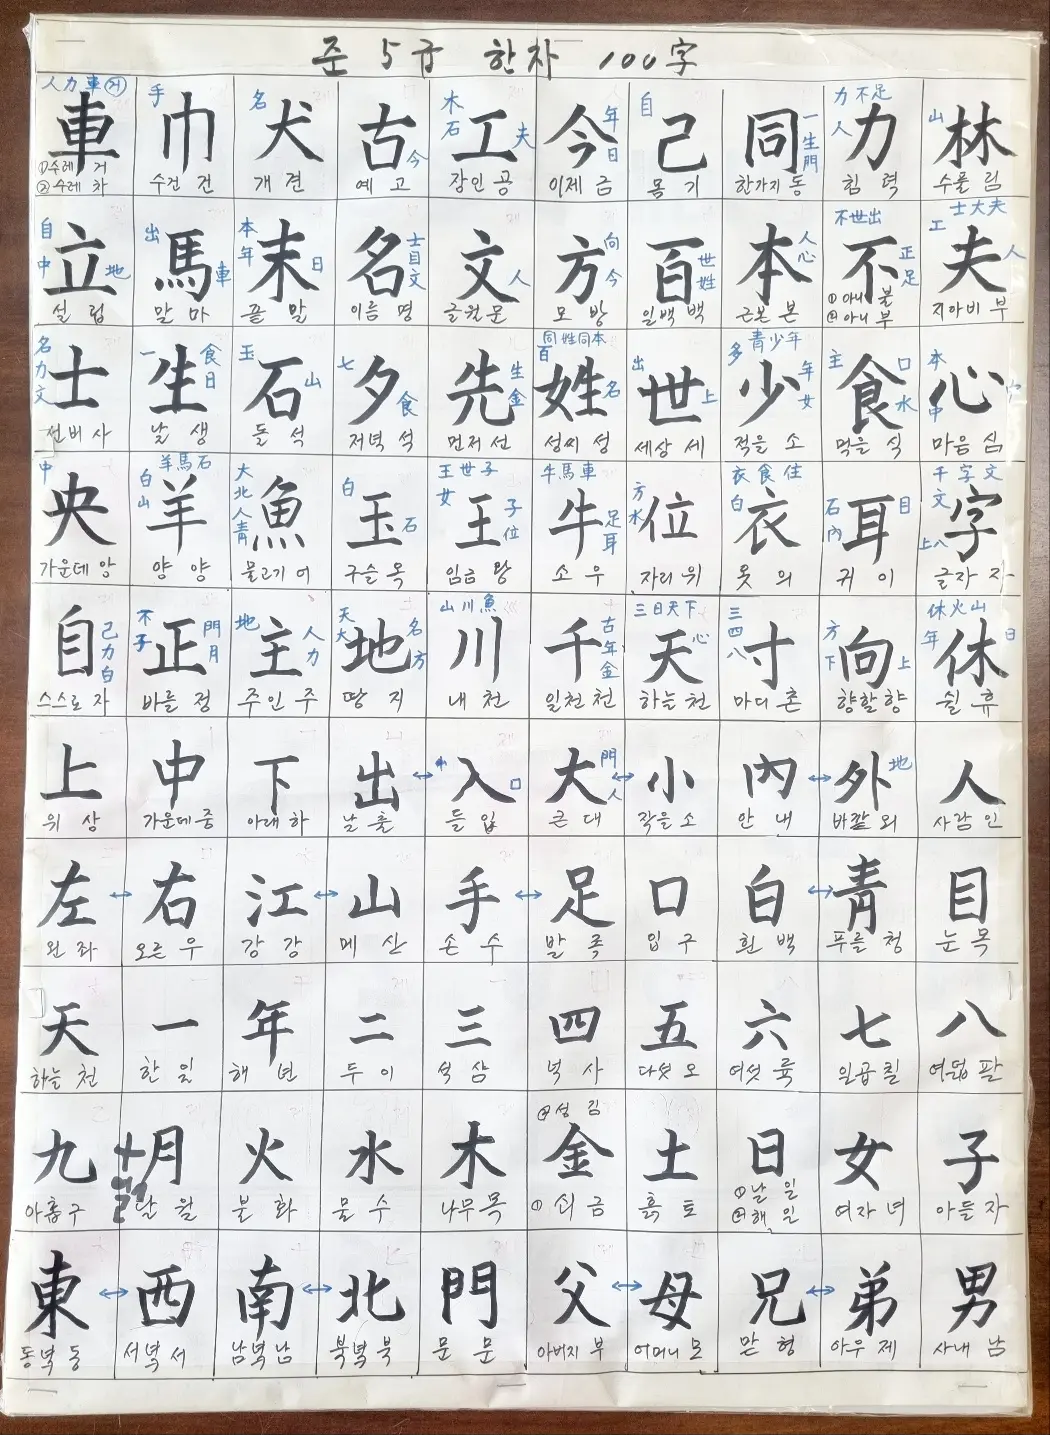 준 5급 한자 100字
人力車거 手 名 木石 夫 年日 自 一生門 力不足 人 山
車 巾 犬 古今 工 今 己 同 力 林
①수레 거 ②수레 차 수건 건 개 견 예 고 장인 공 이제 금 몸 기 한가지 동 힘 력 수풀 림
自中 地 出 車 本年 日 士自文 人 向今 世姓 人心 不世出 正足 士大夫 工 人
立 馬 末 名 文 方 百 本 不 夫
설 립 말 마 끝 말 이름 명 글월 문 모 방 일백 백 근본 본 ①아니 불 ②아니 부 지아비 부
名力文 一 食日 玉 山 七 食 生金 同姓同本 百 名 出 上 多 青少年 年女 主 口水 本中
士 生 石 夕 先 姓 世 少 食 心
선비 사 날 생 돌 석 저녁 석 먼저 선 성씨 성 세상 세 적을 소 먹을 식 마음 심
中 羊馬石 白山 大北人青 白 石 王世子 女 子位 牛馬車 足耳 方水 衣食住 白 石內 目 千字文 文 上八
央 羊 魚 玉 王 牛 位 衣 耳 字
가운데 앙 양 양 물고기 어 구슬 옥 임금 왕 소 우 자리 위 옷 의 귀 이 글자 자
己力白 不子 門月 地 人力 天大 名方 山川魚 古年金 三日天下 心 三四八 方下 上 休火山 年 日
自 正 主 地 川 千 天 寸 向 休
스스로 자 바를 정 주인 주 땅 지 내 천 일천 천 하늘 천 마디 촌 향할 향 쉴 휴
上 中 下 出 ↔ 入 口 大 門人 ↔ 小 內 ↔ 外 地 人
위 상 가운데 중 아래 하 날 출 들 입 큰 대 작을 소 안 내 바깥 외 사람 인
左 ↔ 右 江 ↔ 山 手 ↔ 足 口 白 ↔ 青 目
왼 좌 오른 우 강 강 메 산 손 수 발 족 입 구 흰 백 푸를 청 눈 목
天 一 年 二 三 四 五 六 七 八
하늘 천 한 일 해 년 두 이 석 삼 넉 사 다섯 오 여섯 륙 일곱 칠 여덟 팔
九 十 月 火 水 木 金 土 日 女 子
아홉 구 달 월 불 화 물 수 나무 목 ②성 김 ①쇠 금 흙 토 ①날 일 ②해 일 여자 녀 아들 자
東 ↔ 西 南 ↔ 北 門 父 ↔ 母 兄 ↔ 弟 男
동녘 동 서녘 서 남녘 남 북녘 북 문 문 아버지 부 어머니 모 맏 형 아우 제 사내 남